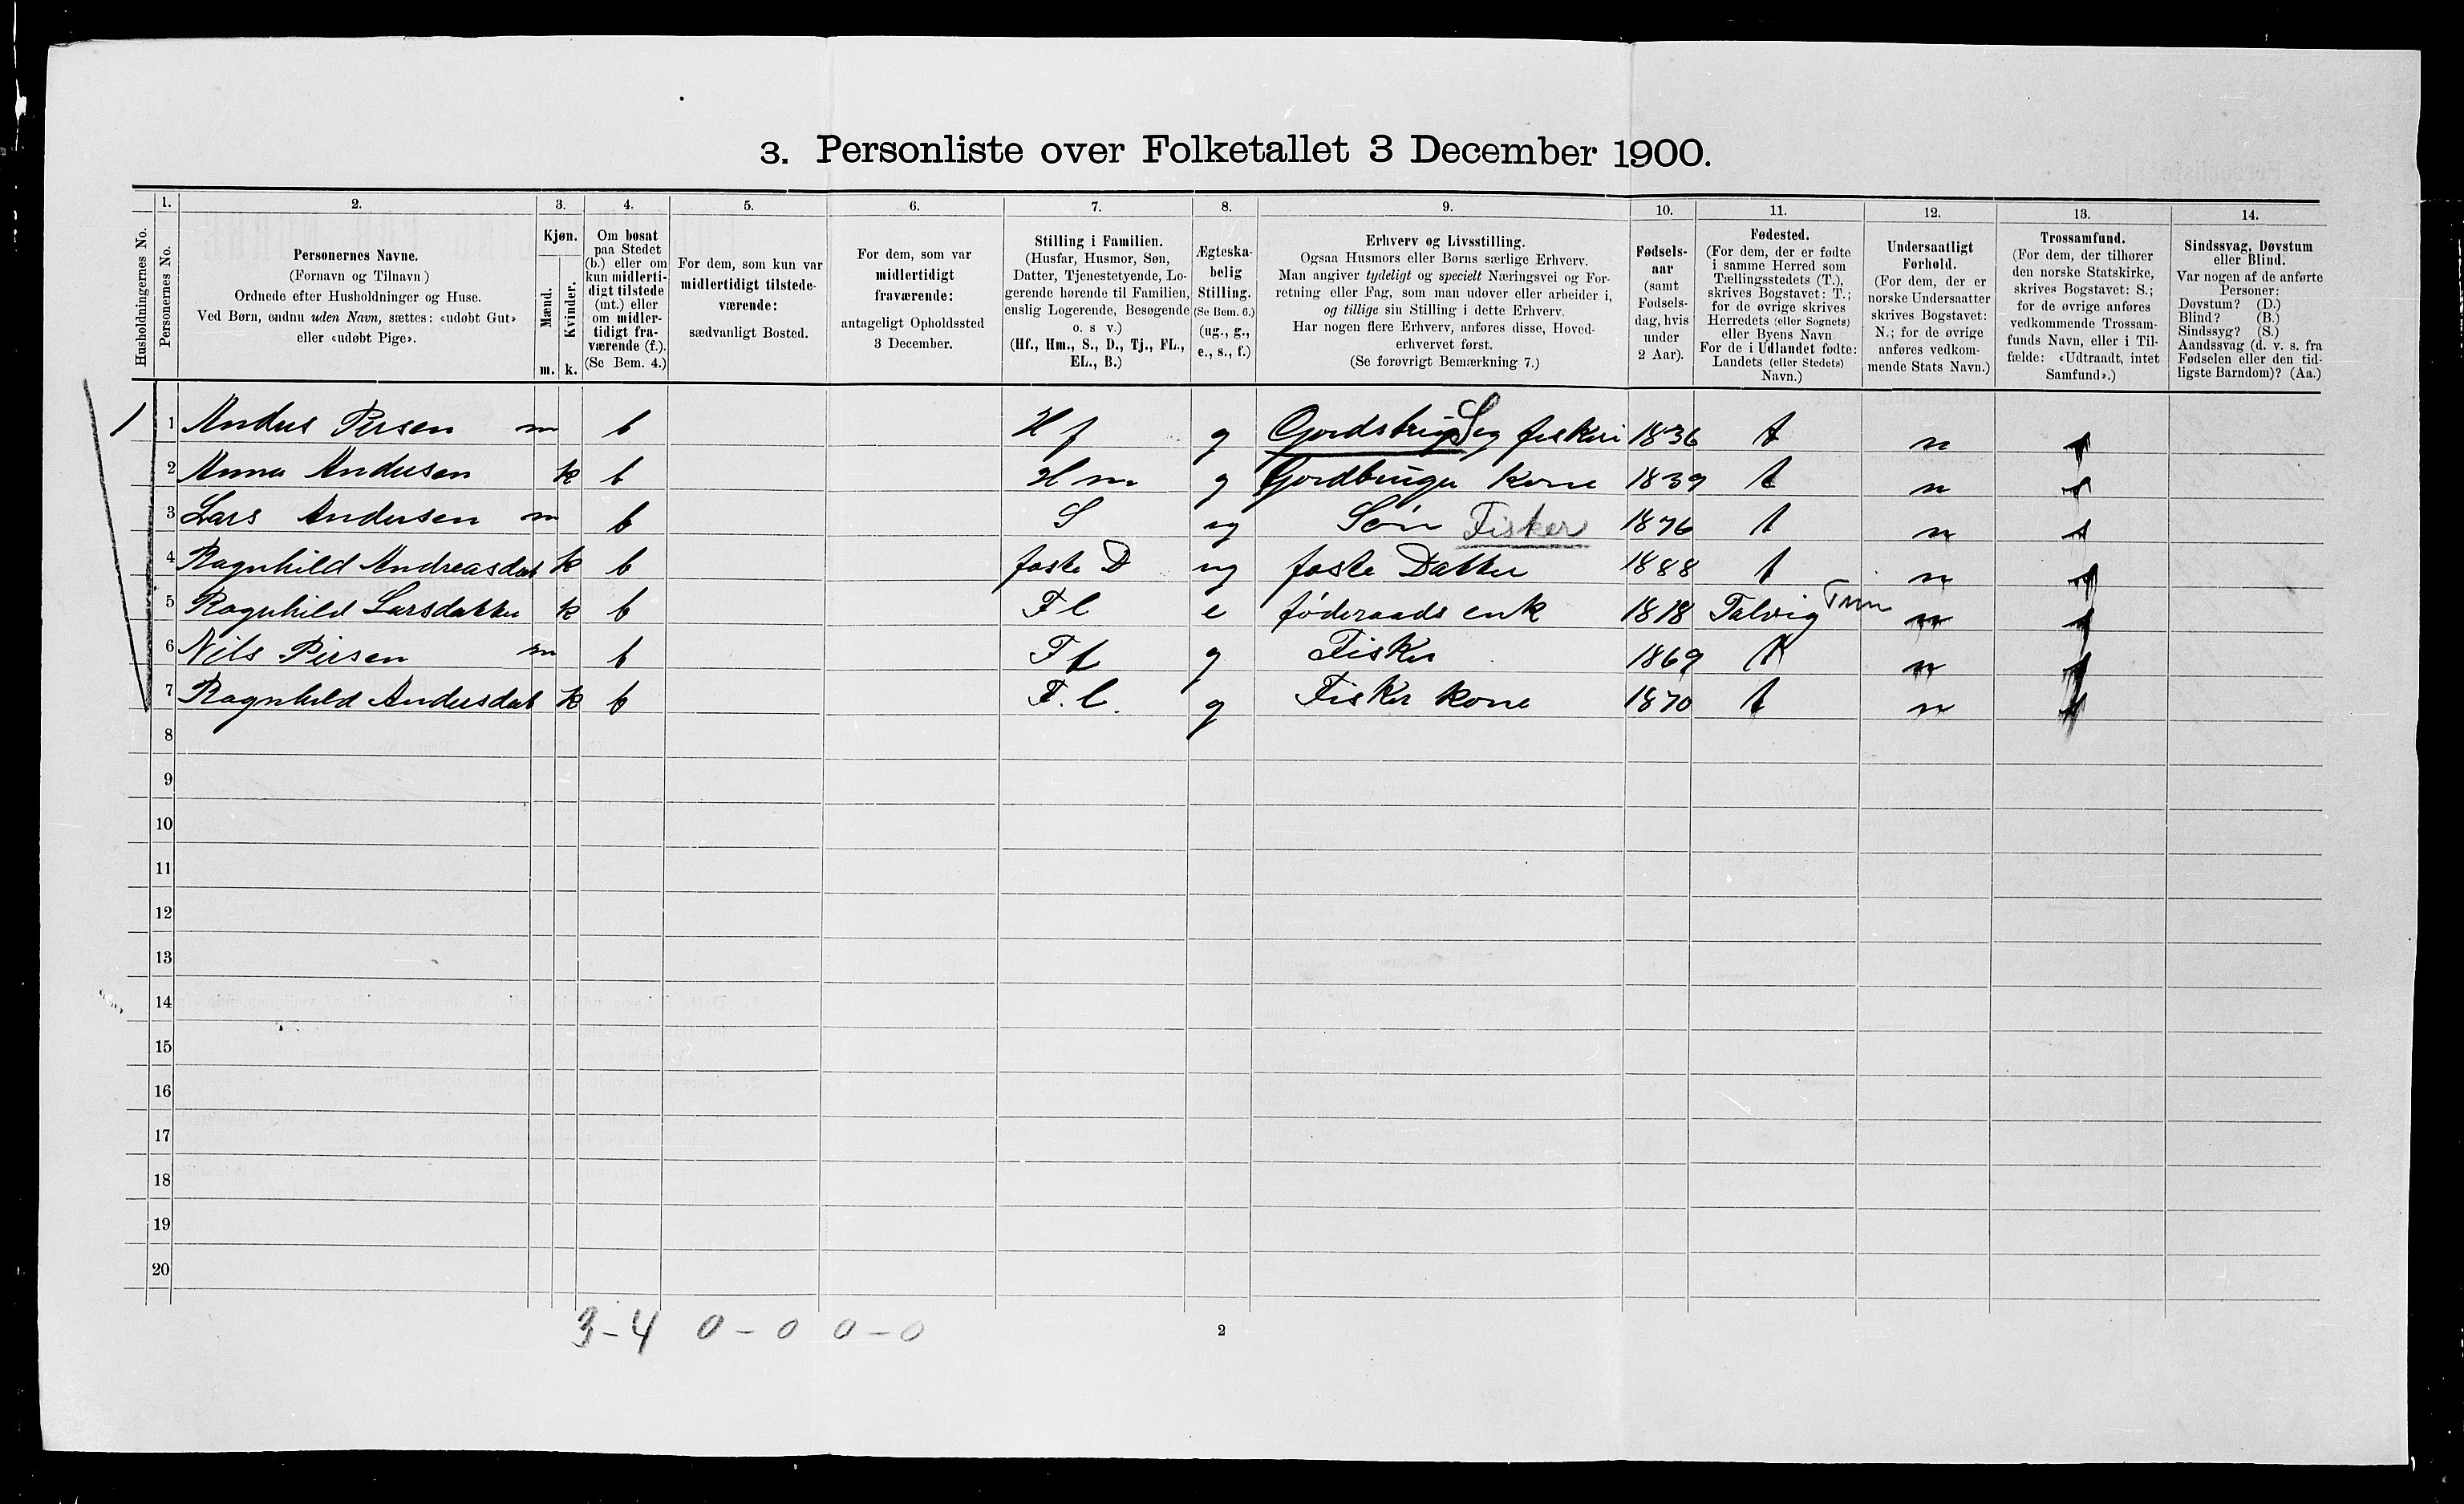 3. Personliste over Folketallet 3 December 1900.
1. 2. 3. 4. 5. 6. 7. 8. 9. 10. 11. 12. 13. 14.
Husholdningernes No.
Personernes No.
Personernes Navne.
(Fornavn og Tilnavn)
Ordnede efter Husholdninger og Huse.
Ved Børn, endnu uden Navn, sættes: «udøbt Gut»
eller «udøbt Pige».
Kjøn.
Mænd.
Kvinder.
m. k.
Om bosat
paa Stedet
(b.) eller om
kun midlerti-
digt tilstede
(mt.) eller
om midler-
tidigt fra-
værende (f.).
(Se Bem. 4.)
For dem, som kun var
midlertidigt tilstede-
værende:
sædvanligt Bosted.
For dem, som var
midlertidigt
fraværende:
antageligt Opholdssted
3 December.
Stilling i Familien.
(Husfar, Husmor, Søn,
Datter, Tjenestetyende, Lo-
gerende hørende til Familien,
enslig Logerende, Besøgende
o. s v.)
(Hf., Hm., S., D., Tj., FL.,
EL., B.)
Ægteska-
belig
Stilling.
(Se Bem. 6.)
(ug., g.,
e., s., f.)
Erhverv og Livsstilling.
Ogsaa Husmors eller Børns særlige Erhverv.
Man angiver tydeligt og specielt Næringsvei og For-
retning eller Fag, som man udøver eller arbeider i,
og tillige sin Stilling i dette Erhverv.
Har nogen flere Erhverv, anføres disse, Hoved-
erhvervet først.
(Se forøvrigt Bemærkning 7.)
Fødsels-
aar
(samt
Fødsels-
dag, hvis
under
2 Aar).
Fødested.
(For dem, der er fødte
i samme Herred som
Tællingsstedets (T.),
skrives Bogstavet: T.;
for de øvrige skrives
Herredets (eller Sognets)
eller Byens Navn
For de i Udlandet fødte:
Landets (eller Stedets)
Navn.)
Undersaatligt
Forhold.
(For dem, der er
norske Undersaatter
skrives Bogstavet:
N.; for de øvrige
anføres vedkom-
mende Stats Navn.)
Trossamfund.
(For dem, der tilhører
den norske Statskirke,
skrives Bogstavet: S.;
for de øvrige anføres
vedkommende Trossam-
funds Navn, eller i Til-
fælde: «Udtraadt, intet
Samfund».)
Sindssvag, Døvstum
eller Blind.
Var nogen af de anførte
Personer:
Døvstum? (D.)
Blind? (B.)
Sindssyg? (S.)
Aandssvag (d. v. s. fra
Fødselen eller den tid-
ligste Barndom)? (Aa.)
1 1 Andus Persen m b Hf g fiskeri 1836 t n s
2 Anna Andersen k b Hm g Gordbruger Kone 1839 t n s
3 Lars Andersen m b S ug Søn Fisker 1876 t n s
4 Ragnhild Andreasdat k b foste D ug foste Datter 1888 t n s
5 Ragnhild Larsdatter k b Fl e føderaads enk 1818 Talvig n s
6 Nils Persen m b g Fisker 1869 t n s
7 Ragnhild Andersdat k b F.l. g Fisker kone 1870 t n s
8
9
10
11
12
13
14
15
16
17
18
19
20
3-4 0-0 0-0
2